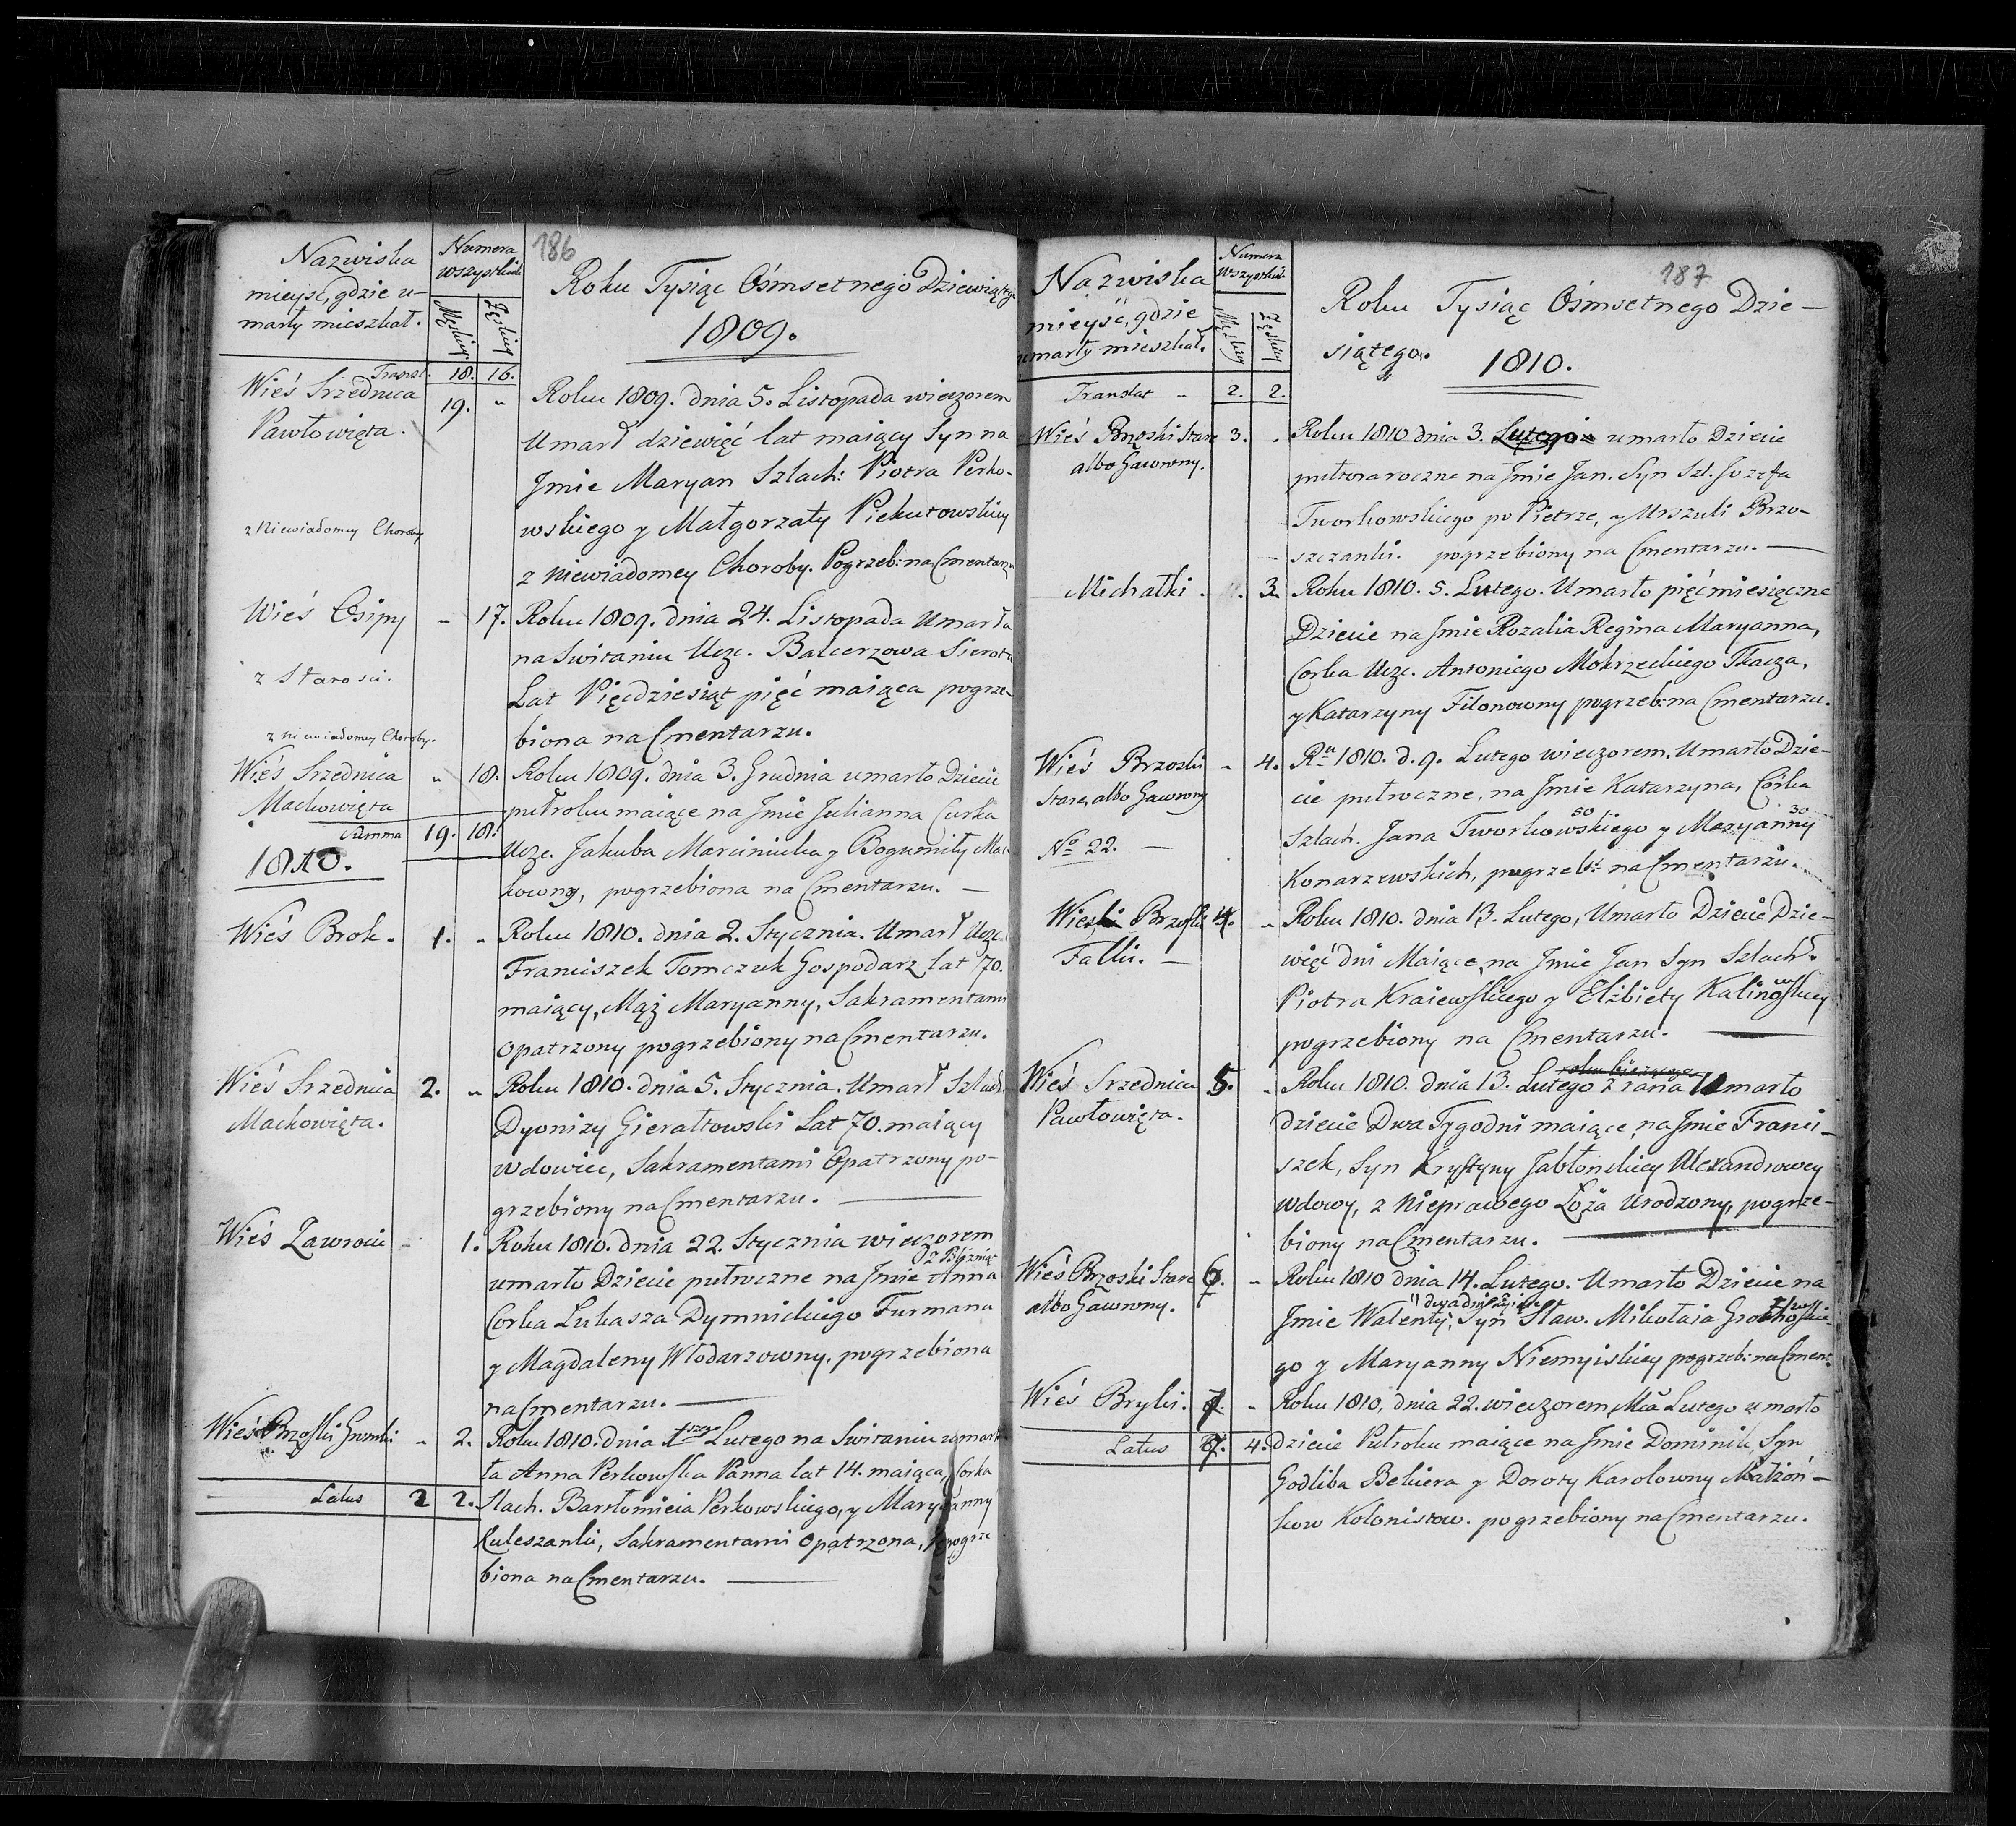 186
Nazwiska
mieysc, gdzie u-
marły mieszkał.
Numera
wszystkich
Męskiey
Żęskiey
Roku Tysiąc Ośmsetnego Dziewiątego
1809.
Transl. 18. 16.
Wieś Srzednica
Pawłowięta.
19. "
Roku 1809. dnia 5. Listopada wieczorem
Umarł dziewięć lat maiący Syn na
Jmie Maryan Szlach: Piotra Perko-
wskiego y Małgorzaty Piekutowskiey
z niewiadomey Choroby. Pogrzeb: na Cmentarzu
z Niewiadomey Choroby
Wieś Osipy
" 17.
z Starosci.
Roku 1809. dnia 24. Listopada Umarła
na Switaniu Ucz. Balcerzowa Sierota
Lat Pięcdziesiąt pięć maiąca pogrze-
biona na Cmentarzu.
z niewiadomey Choroby.
Wieś Srzednica
Mackowięta
" 18.
Roku 1809. dnia 3. Grudnia umarło Dziecie
pułroku maiące na Jmie Julianna Curka
Ucz. Jakuba Marciniuka y Bogumiły Mac-
kowny, pogrzebiona na Cmentarzu. —
Summa 19. 18.
1810.
Wieś Brok.
1. "
Roku 1810. dnia 2. Stycznia. Umarł Ucz.
Franciszek Tomczuk Gospodarz lat 70.
maiący, Mąż Maryanny, Sakramentami
opatrzony pogrzebiony na Cmentarzu.
Wieś Srzednica
Mackowięta.
2. "
Roku 1810. dnia 5. Stycznia. Umarł Szlach.
Dyonizy Gierałtowski Lat 70. maiący
Wdowiec, Sakramentami Opatrzony po-
grzebiony na Cmentarzu. —
Wieś Zawrocie
" 1.
Roku 1810. dnia 22. Stycznia wieczorem
z Bliźniąt
umarło Dziecie pułroczne na Jmie Anna
Corka Łukasza Dymnickiego Furmana
y Magdaleny Włodarzowny, pogrzebiona
na Cmentarzu. —
Wieś Brzoski Gromki
" 2.
Roku 1810. dnia 1szego Lutego na Switaniu umar-
ła Anna Perkowska Panna lat 14. maiąca, Corka
Slach. Bartłomieia Perkowskiego, y Maryanny
Kuleszanki, Sakramentami opatrzona, pogrze
biona na Cmentarzu. —
Latus 2 2.
187
Nazwiska
mieysc, gdzie
umarły mieszkał.
Numera
Wszystkich
Męskiey
Żęskiey
Roku Tysiąc Ośmsetnego Dzie-
siątego. 1810.
Translat " 2. 2.
Wieś Brzoski Stare
albo Gawrony.
3. "
Roku 1810 dnia 3. Lutego umarło Dziecie
pułtoraroczne na Jmie Jan. Syn Szl. Jozefa
Tworkowskiego po Pietrze, y Urszuli Brzo-
szczanki. pogrzebiony na Cmentarzu. —
Michałki.
3.
Roku 1810. 5. Lutego. Umarło pięćmiesięczne
Dziecie na Jmie Rozalia Regina Maryanna,
Corka Ucz. Antoniego Mokrzeckiego Tkacza,
y Katarzyny Filonowny pogrzeb: na Cmentarzu.
Wieś Brzoski
Stare, albo Gawrony
No 22. —
" 4.
Ru 1810. d. 9. Lutego wieczorem, Umarło Dzie-
cie pułroczne, na Jmie Katarzyna, Córka
50 30
Szlach. Jana Tworkowskiego y Maryanny
Konarzewskich, pogrzeb: na Cmentarzu.
Wieś Brzoski
Falki. —
4. "
Roku 1810. dnia 13. Lutego, Umarło Dziecie Dzie-
więć dni Maiące, na Jmie Jan Syn Szlach.
Piotra Kraiewskiego y Elżbiety Kalinowskiey
pogrzebiony na Cmentarzu. —
Wieś Srzednica
Pawłowięta.
5. "
roku bieżącego
Roku 1810. dnia 13. Lutego z rana Umarło
dziecie Dwa Tygodni maiące, na Jmie Franci-
szek, Syn Krystyny Jabłonskiey Alexandrowey
Wdowy, z Nieprawego Łoża Urodzony, pogrze-
biony na Cmentarzu. —
Wieś Brzoski Stare
albo Gawrony.
6. "
Roku 1810 dnia 14. Lutego. Umarło Dziecie na
Jmie Walenty, Syn Sław. Mikołaia Grochowskie-
go y Maryanny Niemyiskiey pogrzeb: na Cment.
Wieś Bryki.
7. "
Roku 1810, dnia 22. wieczorem, Mca Lutego umarło
dziecie Pułroku maiące na Jmie Dominik, Syn
Godliba Bekiera y Doroty Karolowny Małżon-
kow Kolonistow. pogrzebiony na Cmentarzu.
Latus 7. 4.